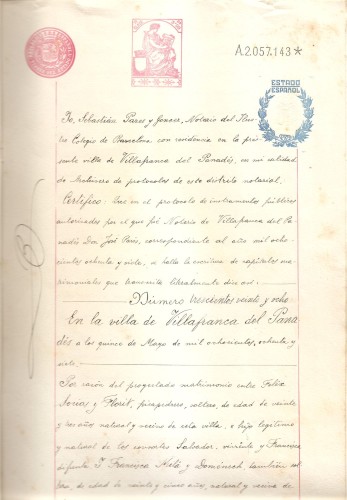 A2.057.143*
ESTADO
ESPAÑOL
Yo, Sebastián Parés y Joncer, Notario del Ilus-
tre Colegio de Barcelona, con residencia en la pre-
sente villa de Villafranca del Panadés, en mi calidad
de Archivero de protocolos de este distrito notarial.
Certifico: Que en el protocolo de instrumentos públicos
autorizados por el que fué Notario de Villafranca del Pa-
nadés Don José Parés, correspondiente al año mil ocho-
cientos ochenta y siete, se halla la escritura de capítulos ma-
trimoniales que transcrita literalmente dice así:
Número trescientos veinte y ocho
En la villa de Villafranca del Pana-
dés a los quince de Mayo de mil ochocientos, ochenta y
siete.
Por razón del proyectado matrimonio entre Félix
y Florit, picapedrero, soltero, de edad de veinte
y tres años, natural y vecino de esta villa, e hijo legítimo
y natural de los consortes Salvador, viviente y Francisca,
difunta y Francisca y Doménech también sol-
tera, de edad de veinte y cinco años, natural y vecina de